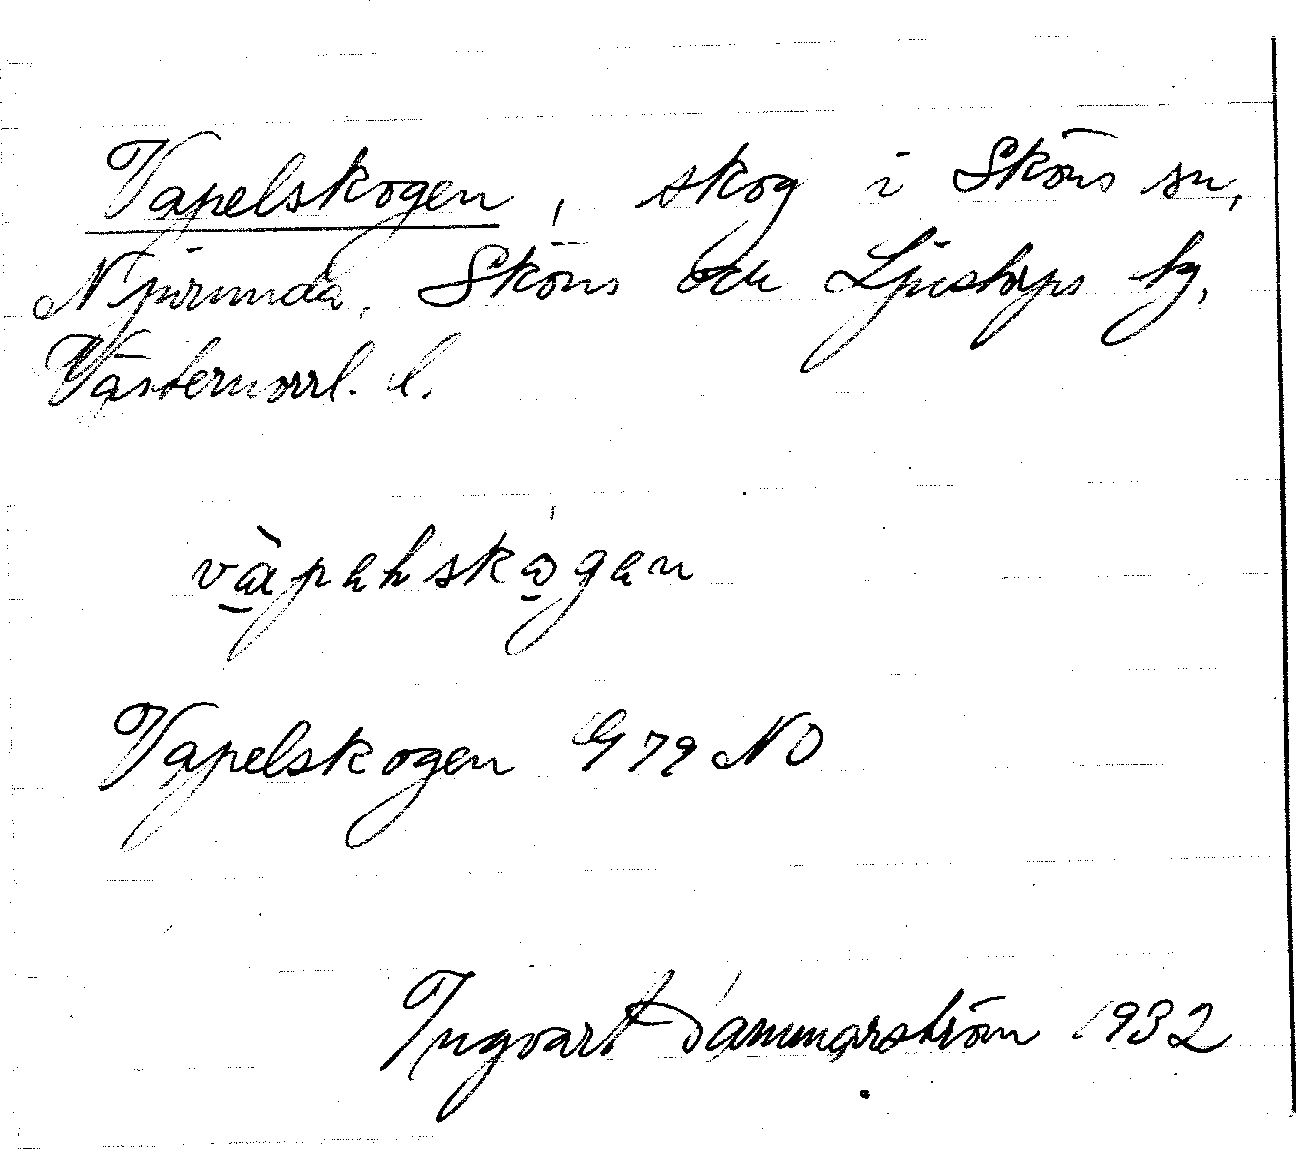 Vapelskogen, skog i Sköns sn,
Njurunda, Sköns och Ljustorps tg,
Västernorrl. l.
vàpahskògan
Vapelskogen G 79 NO
Ingvart Dammarström 1932